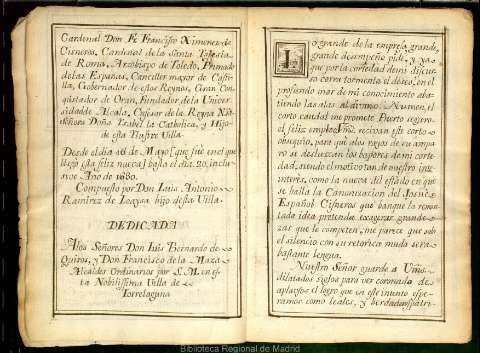 Cardenal Don Fr. Francisco Ximenez de
Cisneros, Cardenal de la Santa Iglesia
de Roma, Arzobispo de Toledo, Primado
de las Españas, Canciller mayor de Casti-
lla, Gobernador de estos Reynos, Gran Con-
quistador de Oran, Fundador de la Univer-
sidad de Alcala, Cofesor de la Reyna
Señora Doña Isabel la Catholica, y Hijo
de esta Ilustre Villa.
Desde el dia 16 de Mayo [que fue en el que
llego esta feliz nueva] hasta el dia 20, inclu-
sive Año de 1680.
Compuesto por Don Luis Antonio
Ramirez de Loaysa hijo desta Villa.
DEDICADA
A los Señores Don Luis Bernardo de
Quiros, y Don Francisco de la Maza
Alcaldes Ordinarios por S. M. en es-
ta Nobilissima Villa de
Torrelaguna
Lo grande de la empresa, grande,
grande desempeño pide, y ya
que por la cortedad de mi discur-
so corra tormenta el deseo, en el
profundo mar de mi conocimiento aba-
tiendo las alas al divino Numen, el
corto caudal me promete Puerto seguro
el feliz empleo. Recivan este corto
obsequio, para que a los rayos de su ampa-
ro se deshagan los vapores de mi corte-
dad, siendo el motivo tan de nuestro in-
interés, como la nueva del estado en que
se halla la Canonizacion del Josue
Español Cisneros que aunque la remon-
tada idea pretenda exagerar grande-
zas que le competen, me parece que sob
el silencio con su retorica muda sera
bastante lengua.
Nuestro Señor guarde a
dilatados siglos para ver coronado de
aplausos el logro que en este intento espe-
ramos como leales, y verdaderos patri-
Biblioteca Regional de Madrid